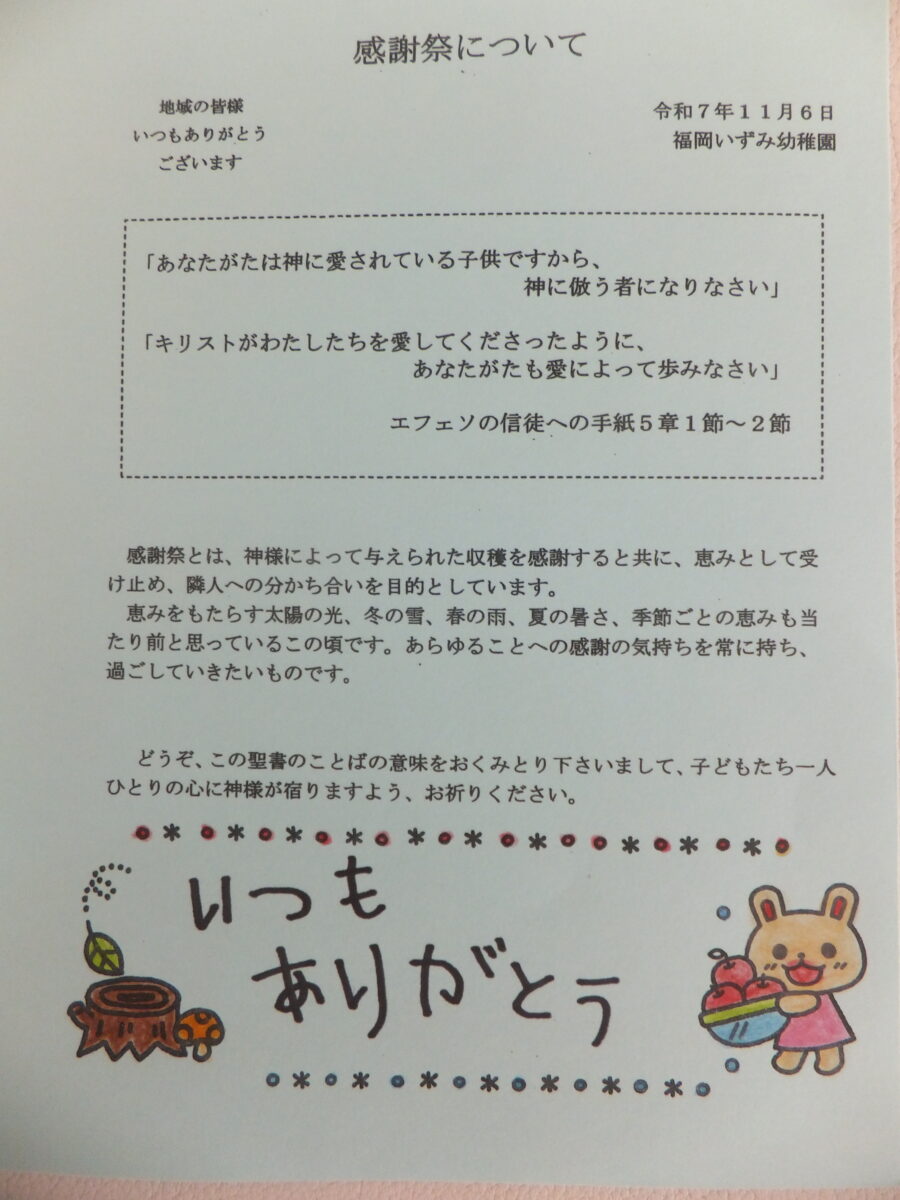 感謝祭について
地域の皆様
いつもありがとう
ございます
令和７年１１月６日
福岡いずみ幼稚園
「あなたがたは神に愛されている子供ですから、
神に倣う者になりなさい」
「キリストがわたしたちを愛してくださったように、
あなたがたも愛によって歩みなさい」
エフェソの信徒への手紙５章１節～２節
感謝祭とは、神様によって与えられた収穫を感謝すると共に、恵みとして受
け止め、隣人への分かち合いを目的としています。
恵みをもたらす太陽の光、冬の雪、春の雨、夏の暑さ、季節ごとの恵みも当
たり前と思っているこの頃です。あらゆることへの感謝の気持ちを常に持ち、
過ごしていきたいものです。
どうぞ、この聖書のことばの意味をおくみとり下さいまして、子どもたち一人
ひとりの心に神様が宿りますよう、お祈りください。
いつも
ありがとう